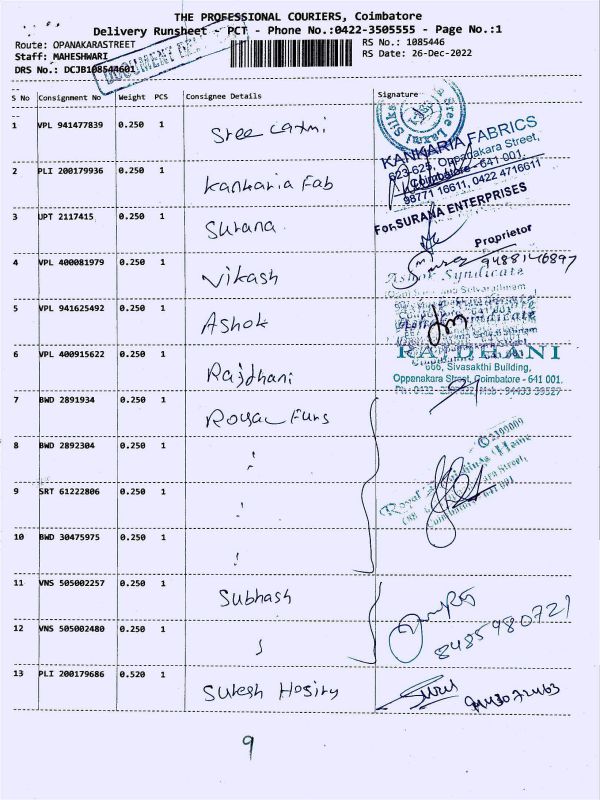 THE PROFESSIONAL COURIERS, Coimbatore
Delivery Runsheet - PCT - Phone No.:0422-3505555 - Page No.:1
Route: OPANAKARASTREET
RS No.: 1085446
Staff: MAHESHWARI
RS Date: 26-Dec-2022
DRS No.: DCJB108544601
DOCUMENT
S No Consignment No Weight PCS Consignee Details Signature
1 VPL 941477839 0.250 1 Sree Laxmi
Sree Laxmi Silks
2 PLI 200179936 0.250 1 Kankaria Fab
KANKARIA FABRICS
623-625, Oppanakara Street,
Coimbatore - 641 001.
98771 16611, 0422 4716611
3 UPT 2117415 0.250 1 Surana
For SURANA ENTERPRISES
Proprietor
4 VPL 400081979 0.250 1 Vikash
9488146897
5 VPL 941625492 0.250 1 Ashok
Ashok Syndicate
6 VPL 400915622 0.250 1 Rajdhani
RAJDHANI
666, Sivasakthi Building,
Oppanakara Street, Coimbatore - 641 001.
7 BWD 2891934 0.250 1 Royal Furs
8 BWD 2892304 0.250 1
9 SRT 61222806 0.250 1
Royal Furnishings Home
10 BWD 30475975 0.250 1
11 VNS 505002257 0.250 1 Subhash
8485980721
12 VNS 505002480 0.250 1
13 PLI 200179686 0.520 1 Suresh Hosiry
9